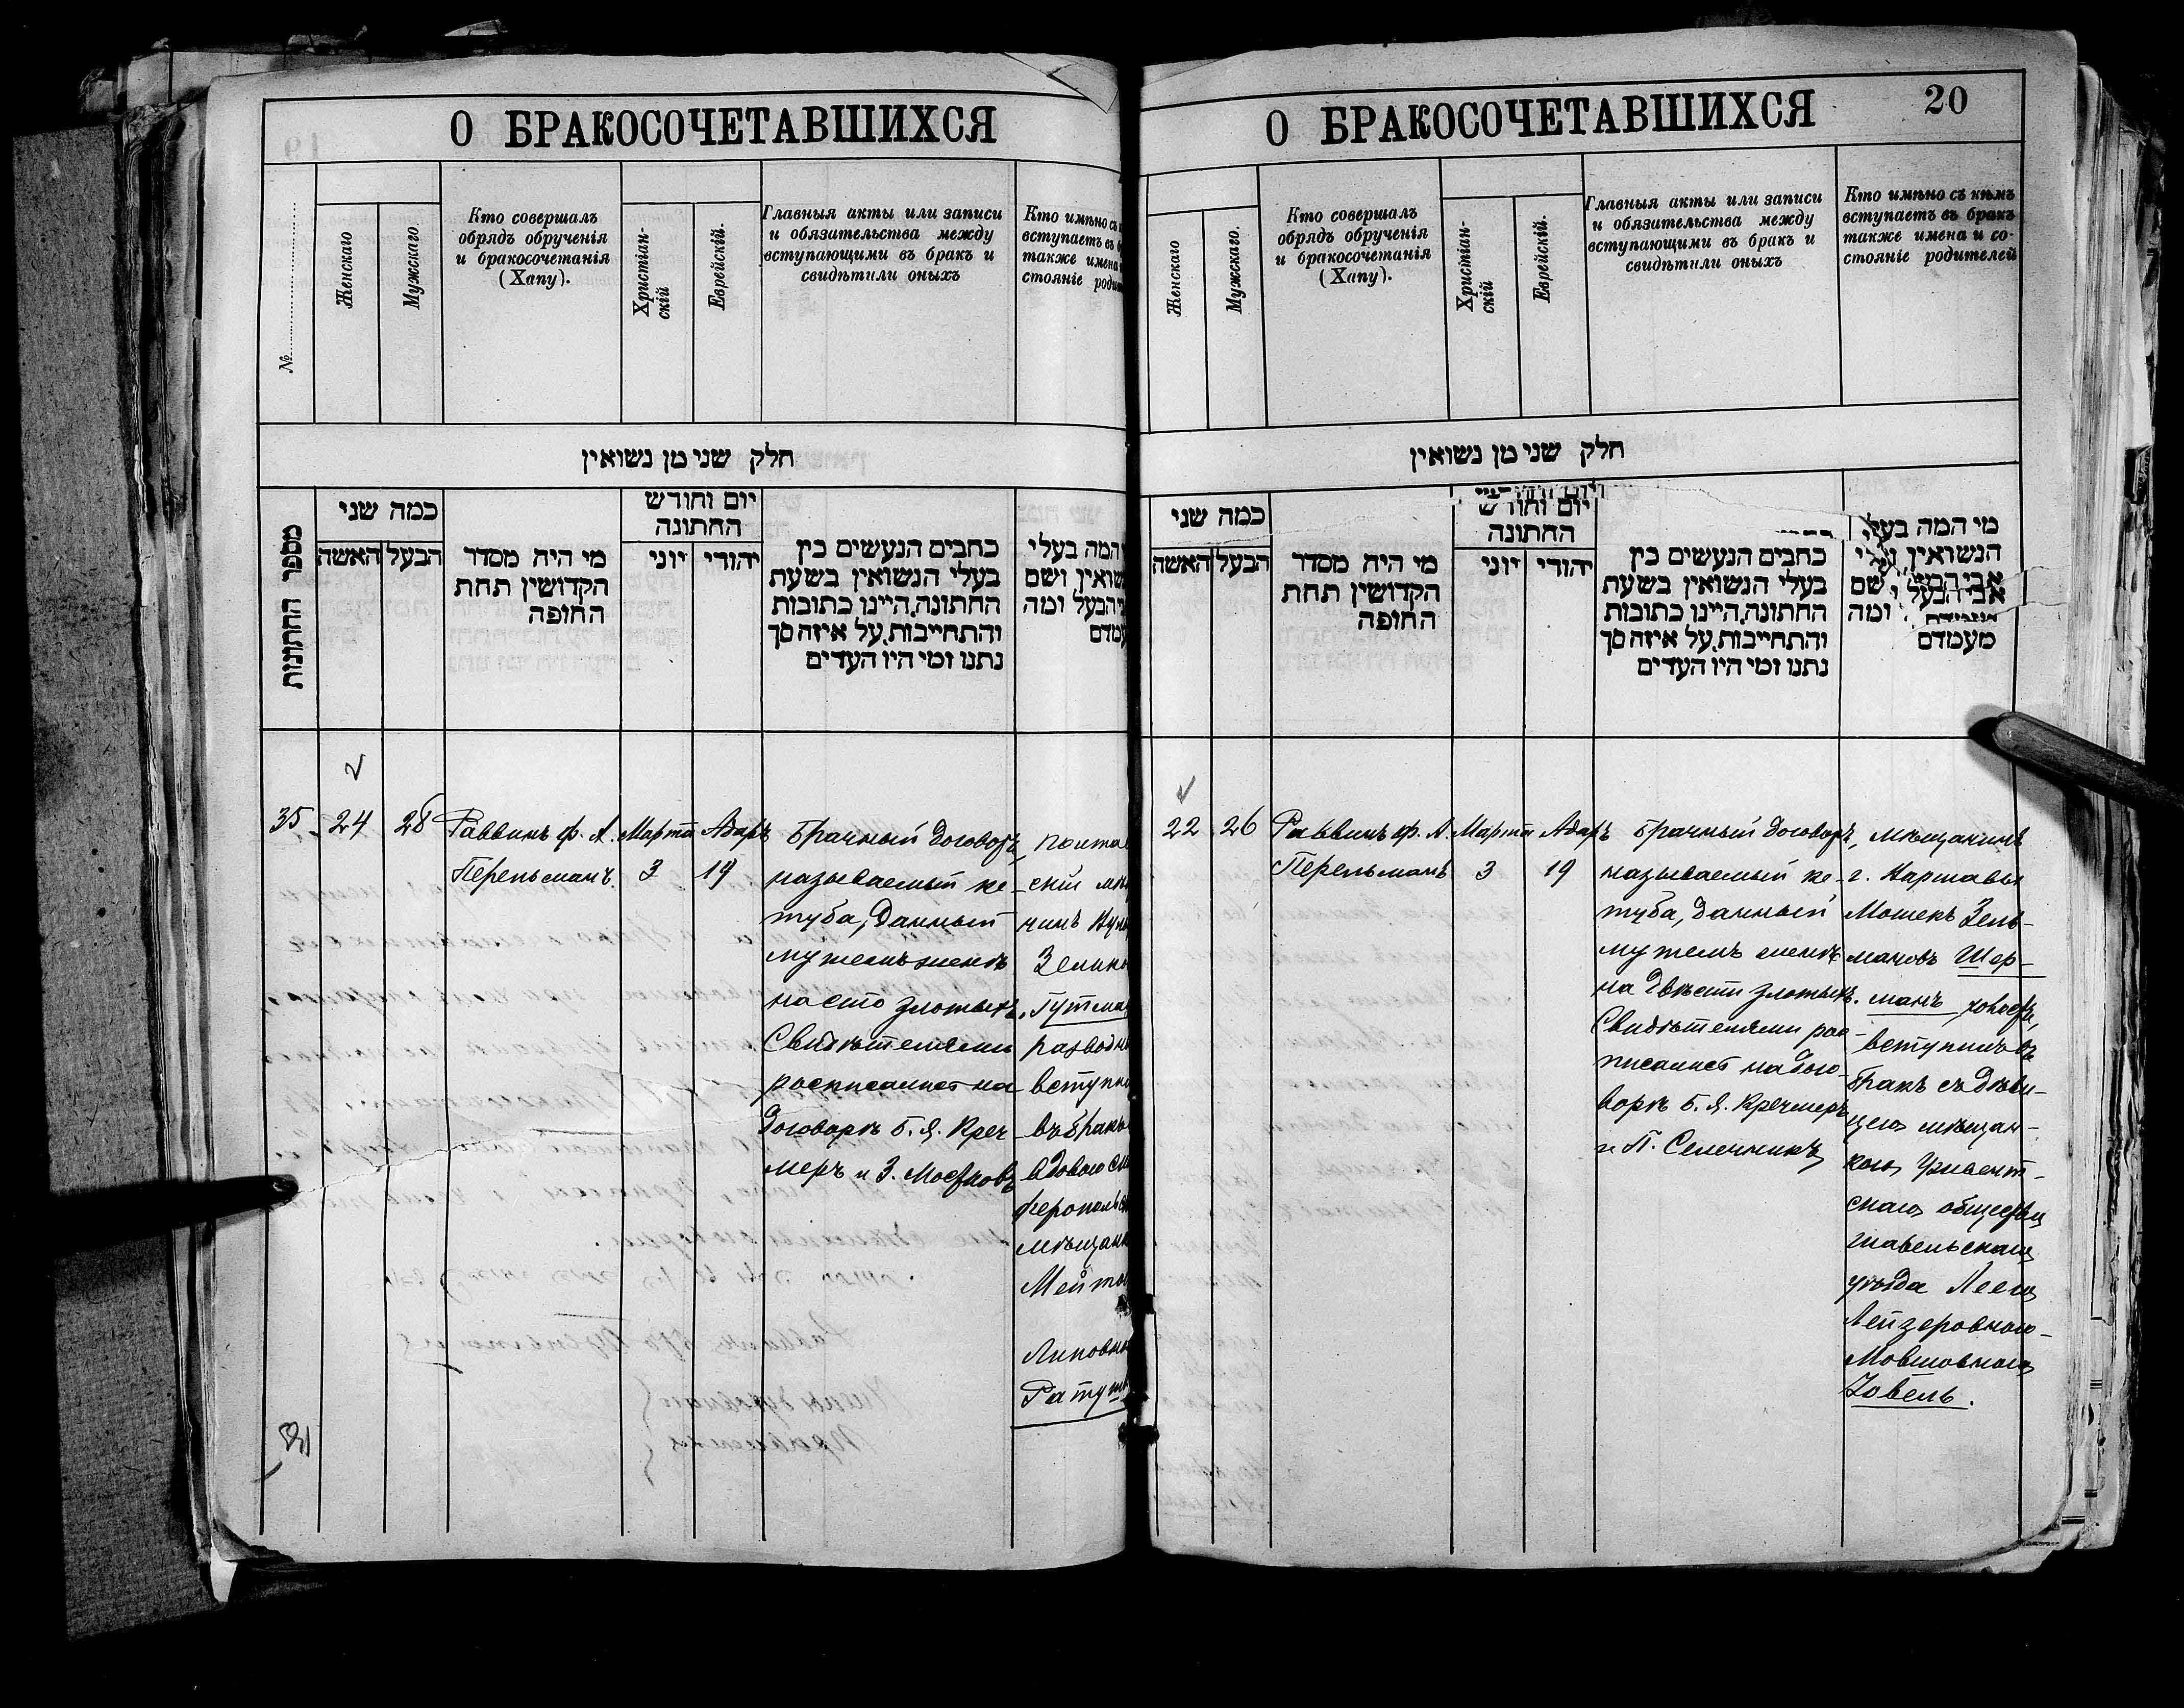 О БРАКОСОЧЕТАВШИХСЯ
№
Женскаго
Мужскаго
Кто совершалъ
обрядъ обрученія
и бракосочетанія
(Хапу).
Христіан-
скій
Еврейскій.
Главныя акты или записи
и обязательства между
вступающими въ бракъ и
свидѣтили оныхъ
Кто имѣно съ
вступаетъ въ
также имена
стояніе
חלק שני מן נשואין
מספר החתונות
כמה שני
האשה
הבעל
מי היה מסדר
הקדושין תחת
החופה
יום וחודש
החתונה
יוני
יהודי
כתבים הנעשים בין
בעלי הנשואין בשעת
החתונה, היינו כתובות
והתחייבות, על איזה סך
נתנו ומי היו העדים
המה בעלי
ושם
הבעל ומה
35
24
28
Раввинъ Ф. А.
Перельманъ.
Марта
3
Адаръ
19
Брачный договоръ,
называемый ке-
туба, данный
мужемъ женѣ
на сто злотыхъ.
Свидѣтелями
росписались на
договорѣ Б. Я. Креч
меръ и З.
скій
Гутма
вступи
въ бракъ
вдовою
мѣщанк
О БРАКОСОЧЕТАВШИХСЯ
20
Женскаго
Мужскаго.
Кто совершалъ
обрядъ обрученія
и бракосочетанія
(Хапу).
Христіан-
скій
Еврейскій.
Главныя акты или записи
и обязательства между
вступающими въ бракъ и
свидѣтили оныхъ
Кто имѣно съ кѣмъ
вступаетъ въ бракъ
также имена и со-
стояніе родителей
חלק שני מן נשואין
כמה שני
האשה
הבעל
מי היה מסדר
הקדושין תחת
החופה
יום וחודש
החתונה
יוני
יהודי
כתבים הנעשים בין
בעלי הנשואין בשעת
החתונה, היינו כתובות
והתחייבות, על איזה סך
נתנו ומי היו העדים
מי המה בעלי
הנשואין
אבי הבעל
שם
ומה
מעמדם
22
26
Раввинъ Ф. А.
Перельманъ
Марта
3
Адаръ
19
Брачный договоръ,
называемый ке-
туба, данный
мужемъ женѣ
на двѣсти злотыхъ.
Свидѣтелями рос-
писались на дого-
ворѣ Б. Я. Кречмеръ
и П.
мѣщанинъ
г. Варшавы
Мошекъ Зель-
мановъ Шер-
манъ холостъ,
вступилъ въ
бракъ съ дѣви-
цею мѣщан-
кою
скаго общества
шавельскаго
уѣзда Леею
Лейзеровною-
Мовшовною